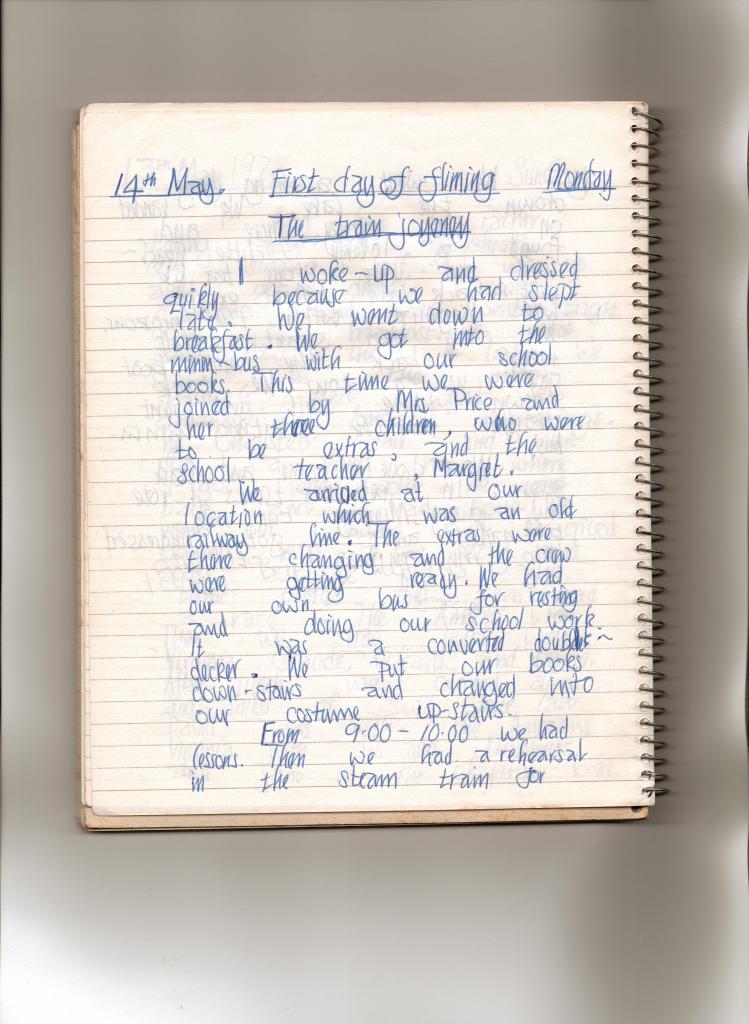 14th May. First day of fliming Monday
The train joyeney
I woke-up and dressed
quikly because we had slept
late. We went down to
breakfast. We got into the
minny-bus with our school
books. This time we were
joined by Mrs Price and
her three children, who were
to be extras, and the
school teacher, Margret.
We arrided at our
location which was an old
railway line. The extras were
there changing and the crew
were getting ready. We had
our own bus for resting
and doing our school work.
It was a converted double-
decker. We put our books
down-stairs and changed into
our costume up-stairs.
From 9.00 - 10.00 we had
lessons. Then we had a rehearsal
in the steam train for